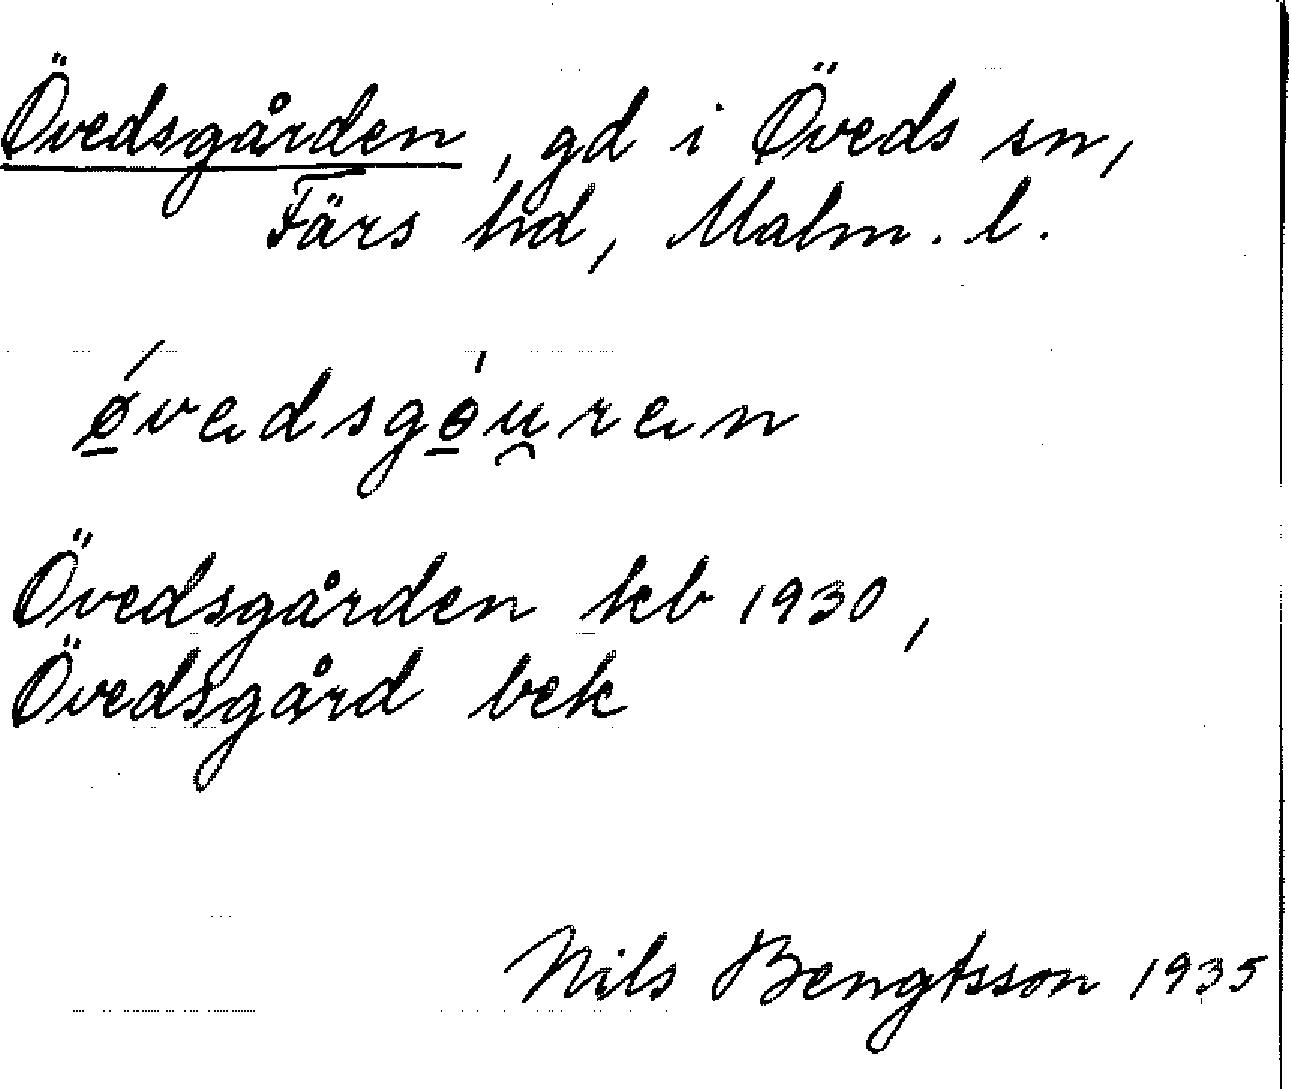 Övedsgården, gd i Öveds sn,
Färs hd, Malm. l.
ǿ̱vedsgó̱u̯ren
Övedsgården kb 1930,
Övedsgård bek
Nils Bengtsson 1935